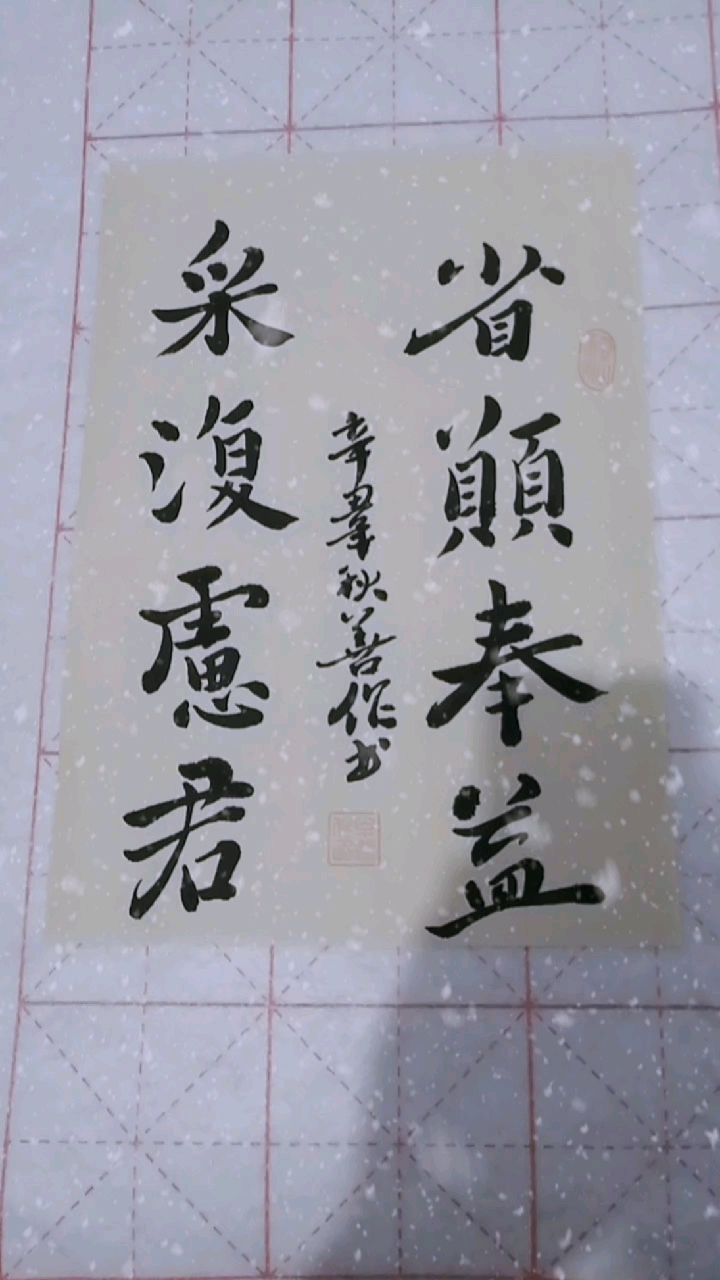 省顛奉益
采復慮君
辛睪秋善作书